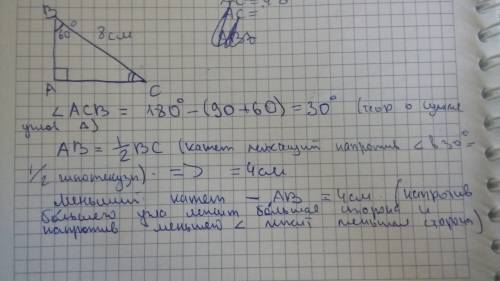 B
60°
8см
A
C
∠ACB = 180° - (90 + 60) = 30° (теор о сумме
углов Δ)
AB = 1/2 BC (катет лежащий напротив ∠ в 30° =
1/2 гипотенузы). => = 4см
Меньший катет — AB = 4см (напротив
большего угла лежит большая сторона и
напротив меньшего ∠ лежит меньшая сторона)